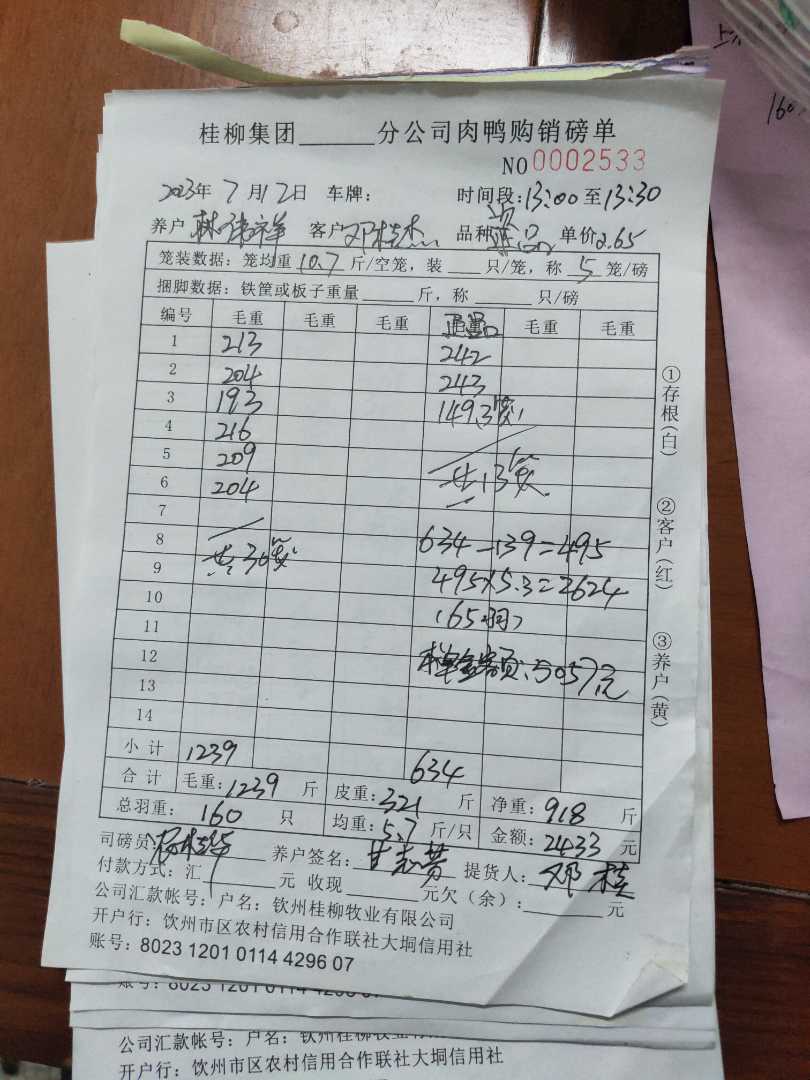 上六
160
桂柳集团______分公司肉鸭购销磅单
NO 0002533
2023年 7 月 12 日 车牌: 时间段: 13:00 至 13:30
养户 客户 邓桂杰 品种 单价 2.65
笼装数据: 笼均重 10.7 斤/空笼, 装___只/笼, 称 5 笼/磅
捆脚数据: 铁筐或板子重量______斤, 称______只/磅
编号 毛重 毛重 毛重 毛重 毛重
1 213 242
2 204 243
3 193 149.3笼
4 216
5 209 共13笼
6 204
7
8 共30笼 634-139=495
9 495×5.3=2624
10 (65羽)
11
12 本单金额: 5057元
13
14
小计 1239 634
合计 毛重: 1239 斤 皮重: 321 斤 净重: 918 斤
总羽重: 160 只 均重: 5.7 斤/只 金额: 2433 元
司磅员: 养户签名: 提货人: 邓桂
付款方式: 汇______元 收现______元欠(余): ______元
公司汇款帐号: 户名: 钦州桂柳牧业有限公司
开户行: 钦州市区农村信用合作联社大垌信用社
账号: 8023 1201 0114 4296 07
①存根(白) ②客户(红) ③养户(黄)
账号: 8023 1201 0114 4296 07
公司汇款帐号: 户名: 钦州桂柳牧业有限
开户行: 钦州市区农村信用合作联社大垌信用社